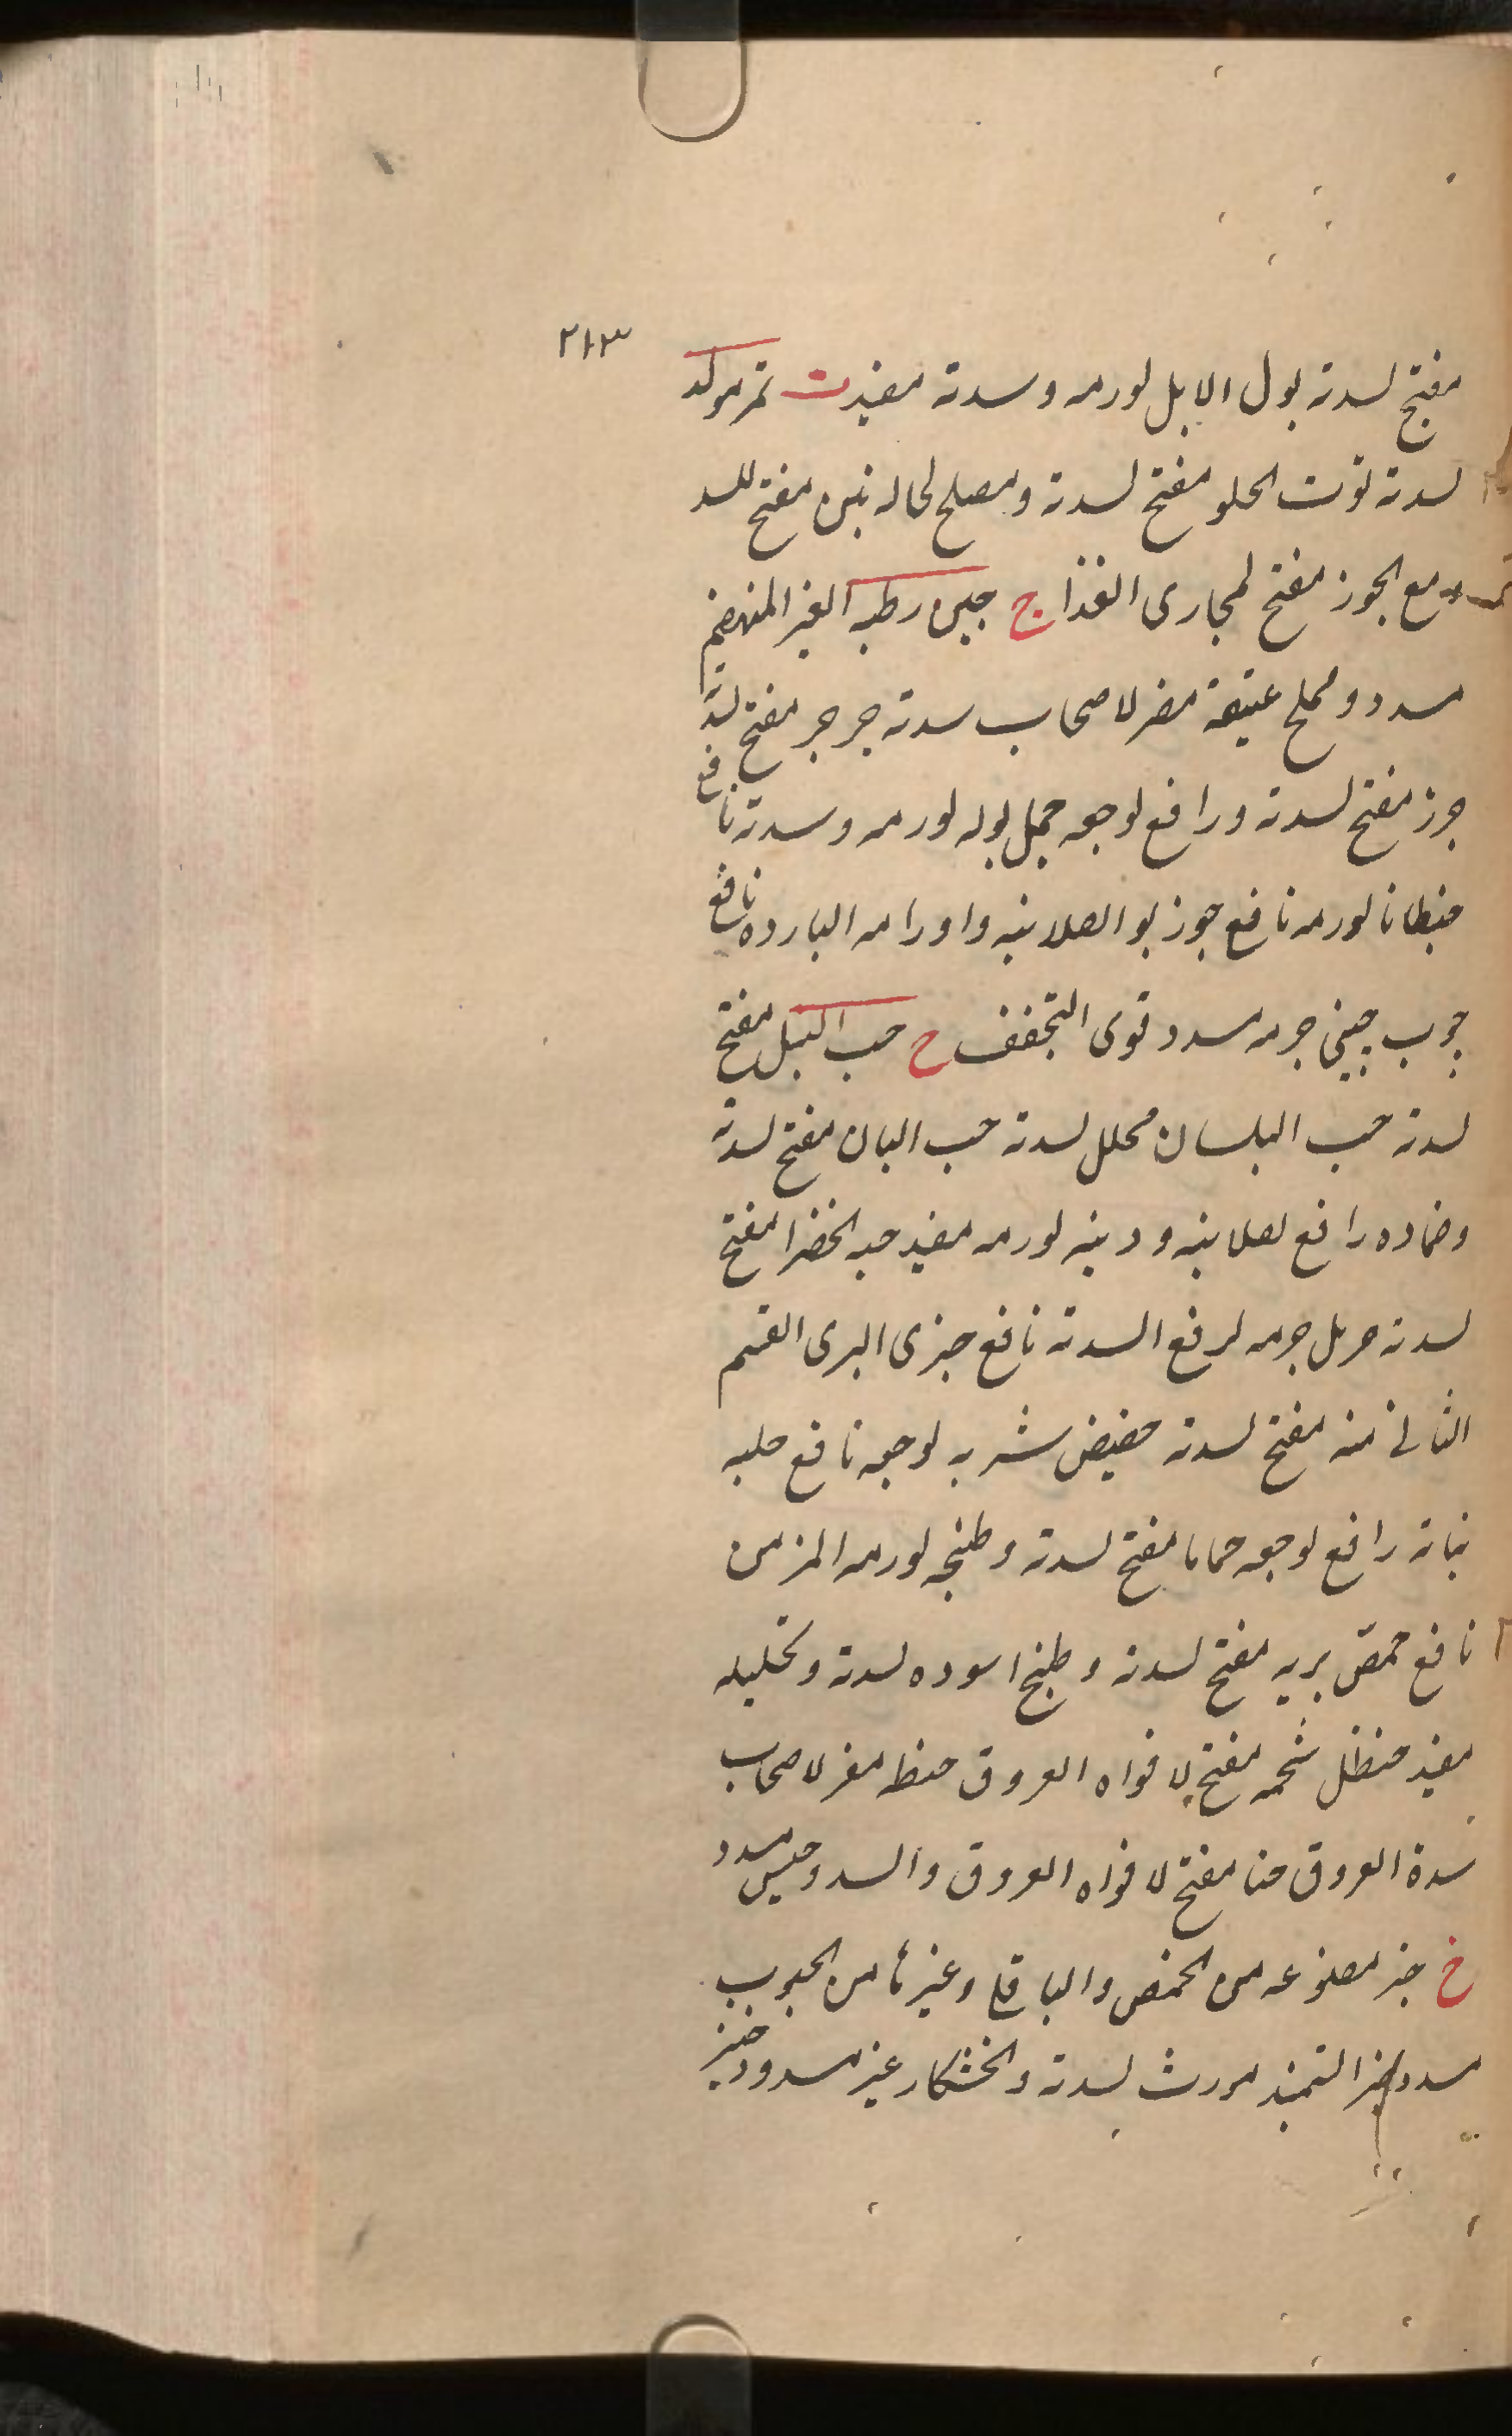 ٢١٣
مفتح لسدته بول الابل لورمه وسدته مفيد ت تمر مولد
لسدته توت الحلو مفتح لسدته ومصلح لحاله تين مفتح للسد
مع الجوز مفتح لمجارى الغذا ج جبن رطبه الغير المنهضم
مسدد ومملح عتيقه مضر لاصحاب سدته جرجر مفتح لسدته
جزر مفتح لسدته ورافع لوجعه جمل بوله لورمه وسدته نافع
جنطانا لورمه نافع جوز بوا لصلابته واورامه البارده نافع
چوب چينى جرمه مسدد قوى التجفف ح حب النيل مفتح
لسدته حب البلسان محلل لسدته حب البان مفتح لسدته
وضماده رافع لصلابته ودهنه لورمه مفيد حبه الخضرا مفتح
لسدته حرمل جرمه لرفع السدته نافع البرى القسم
الثانى منه مفتح لسدته حضيض شربه لوجعه نافع حلبه
نباته رافع لوجعه حماما مفتح لسدته وطبخه لورمه المزمن
نافع حمص بريه مفتح لسدته وطبخ اسوده لسدته وتحليله
مفيد حنظل شحمه مفتح لافواه العروق حنطه مضر لاصحاب
سدة العروق حنا مفتح لافواه العروق والسدد حيس مسدد
خ خبز مصنوعه من الحمص والباقلا وغيرها من الحبوب
مسدد خبز السميذ مورث لسدته والخشكار غير مسدد وخبز